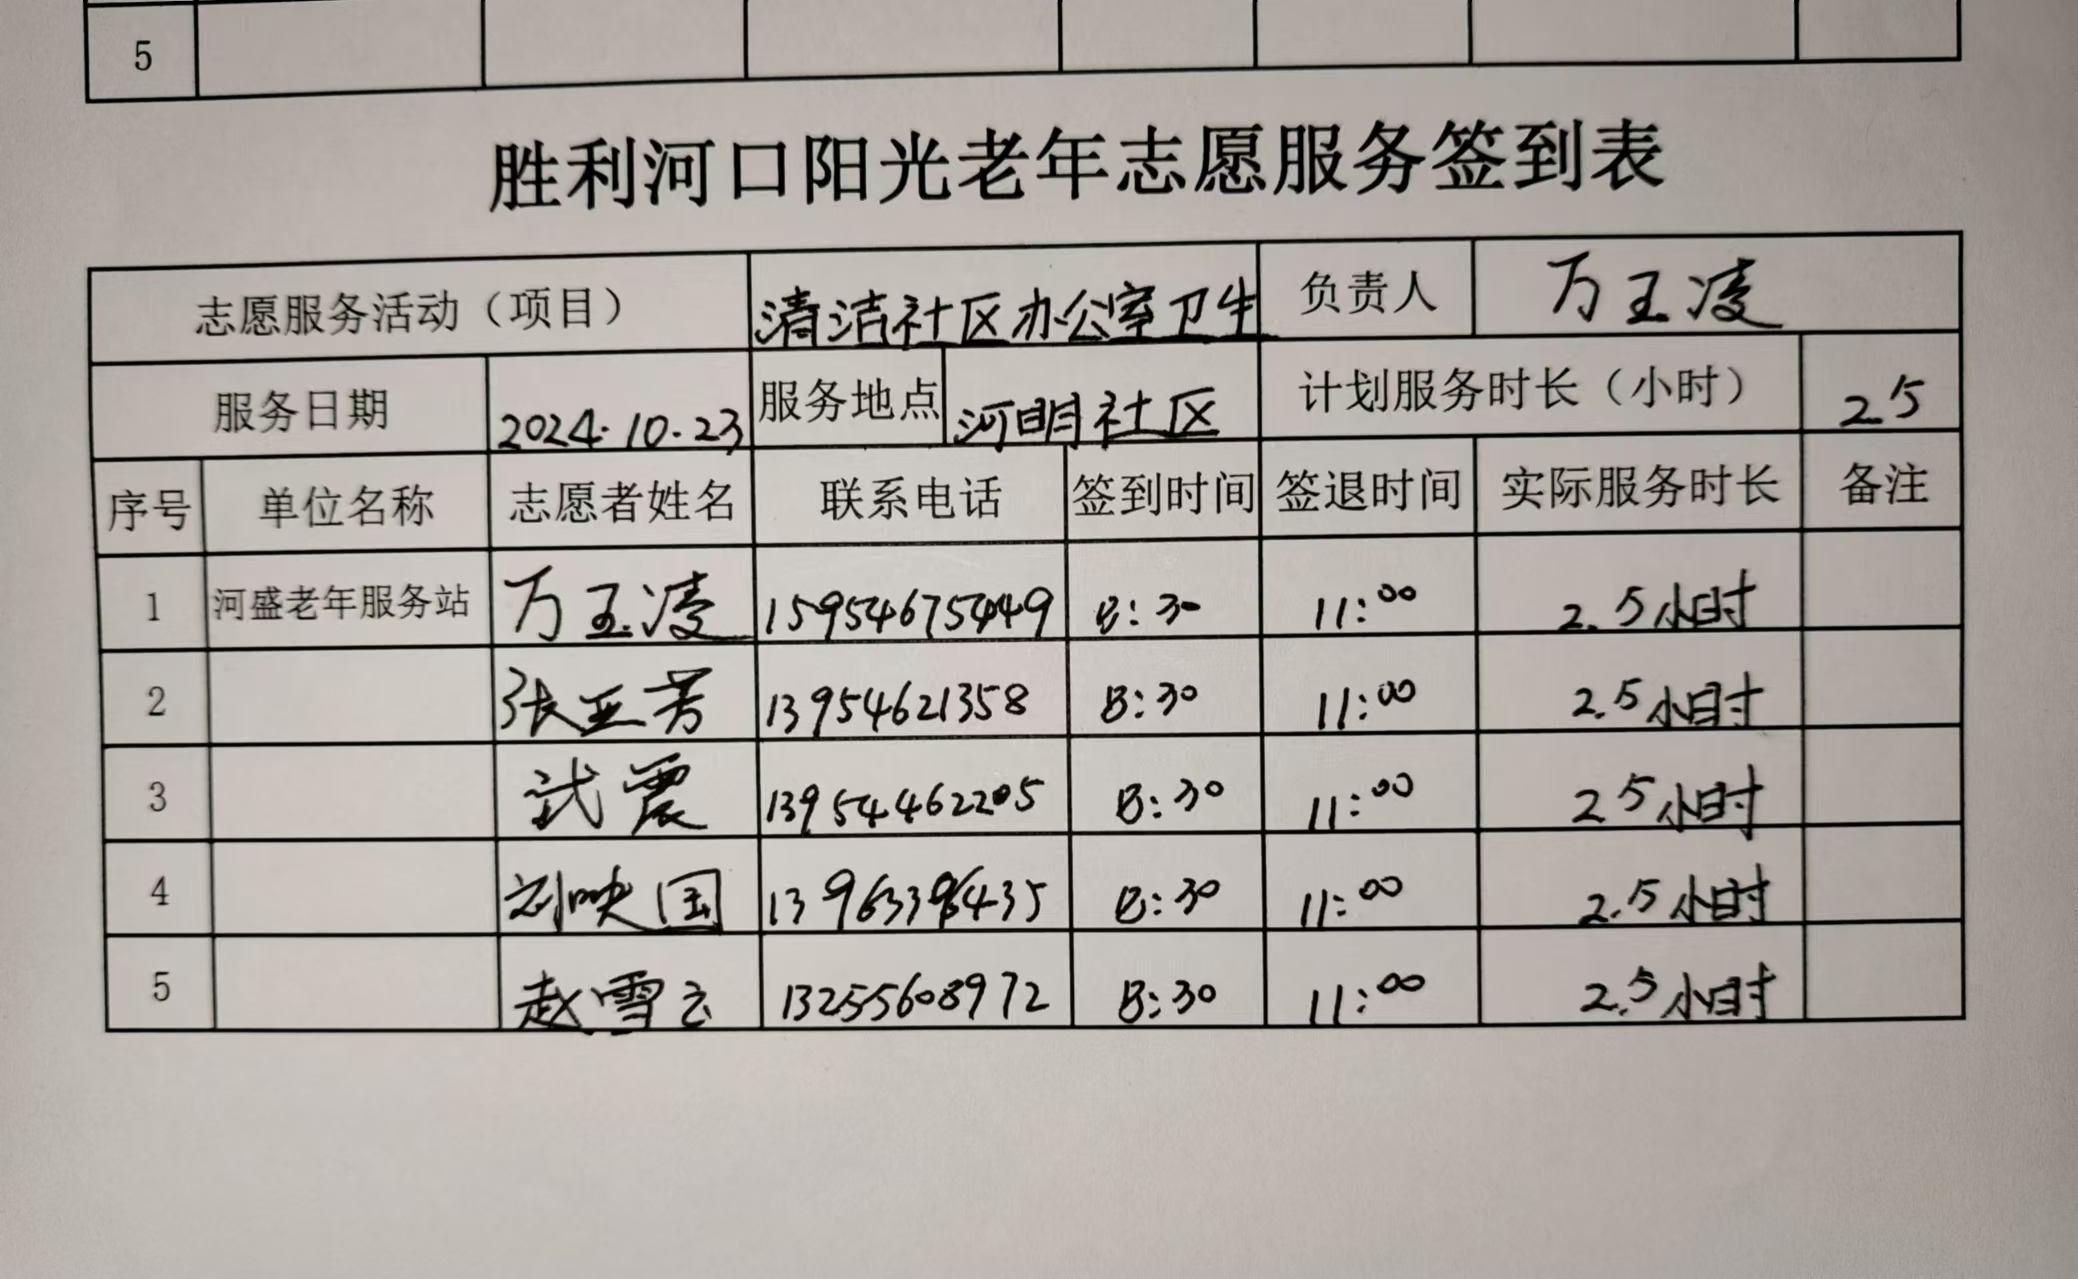 5
胜利河口阳光老年志愿服务签到表
志愿服务活动（项目） 清洁社区办公室卫生 负责人 万玉凌
服务日期 2024.10.23 服务地点 河明社区 计划服务时长（小时） 2.5
序号 单位名称 志愿者姓名 联系电话 签到时间 签退时间 实际服务时长 备注
1 河盛老年服务站 万玉凌 15954675449 8:30 11:00 2.5小时
2 张亚芳 13954621358 8:30 11:00 2.5小时
3 武震 13954462205 8:30 11:00 2.5小时
4 刘映国 8:30 11:00 2.5小时
5 赵雪云 13255608972 8:30 11:00 2.5小时